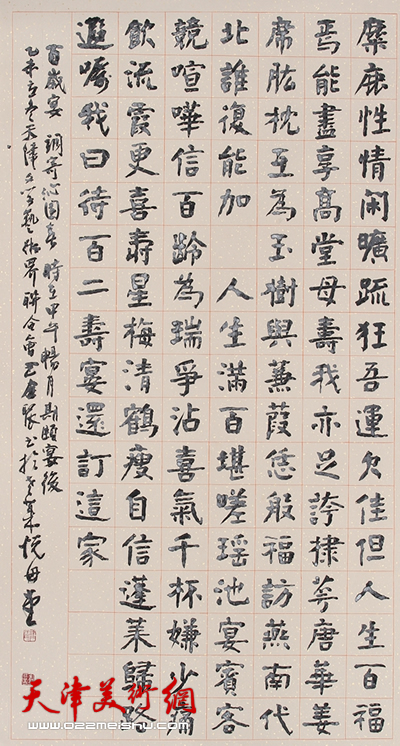 麋鹿性情闲曠疏狂吾運欠佳但人生百福
焉能盡享高堂母壽我亦足誇棣萼唐華姜
席肱枕互為玉樹與蒹葭恁般福訪燕南代
北誰復能加 人生滿百堪嗟瑶池宴賓客
競喧嘩信百齡為瑞爭沾喜氣千杯嫌少滿
飲流霞更喜壽星梅清鶴瘦自信蓬萊歸路
遐嘱我曰待百二壽宴還訂這家
百歲宴 調寄沁園春 時在甲午暢月期頤宴後
乙未天津文學藝術界聯合會書於老萊悅母堂
天津美術網
www.022meishu.com